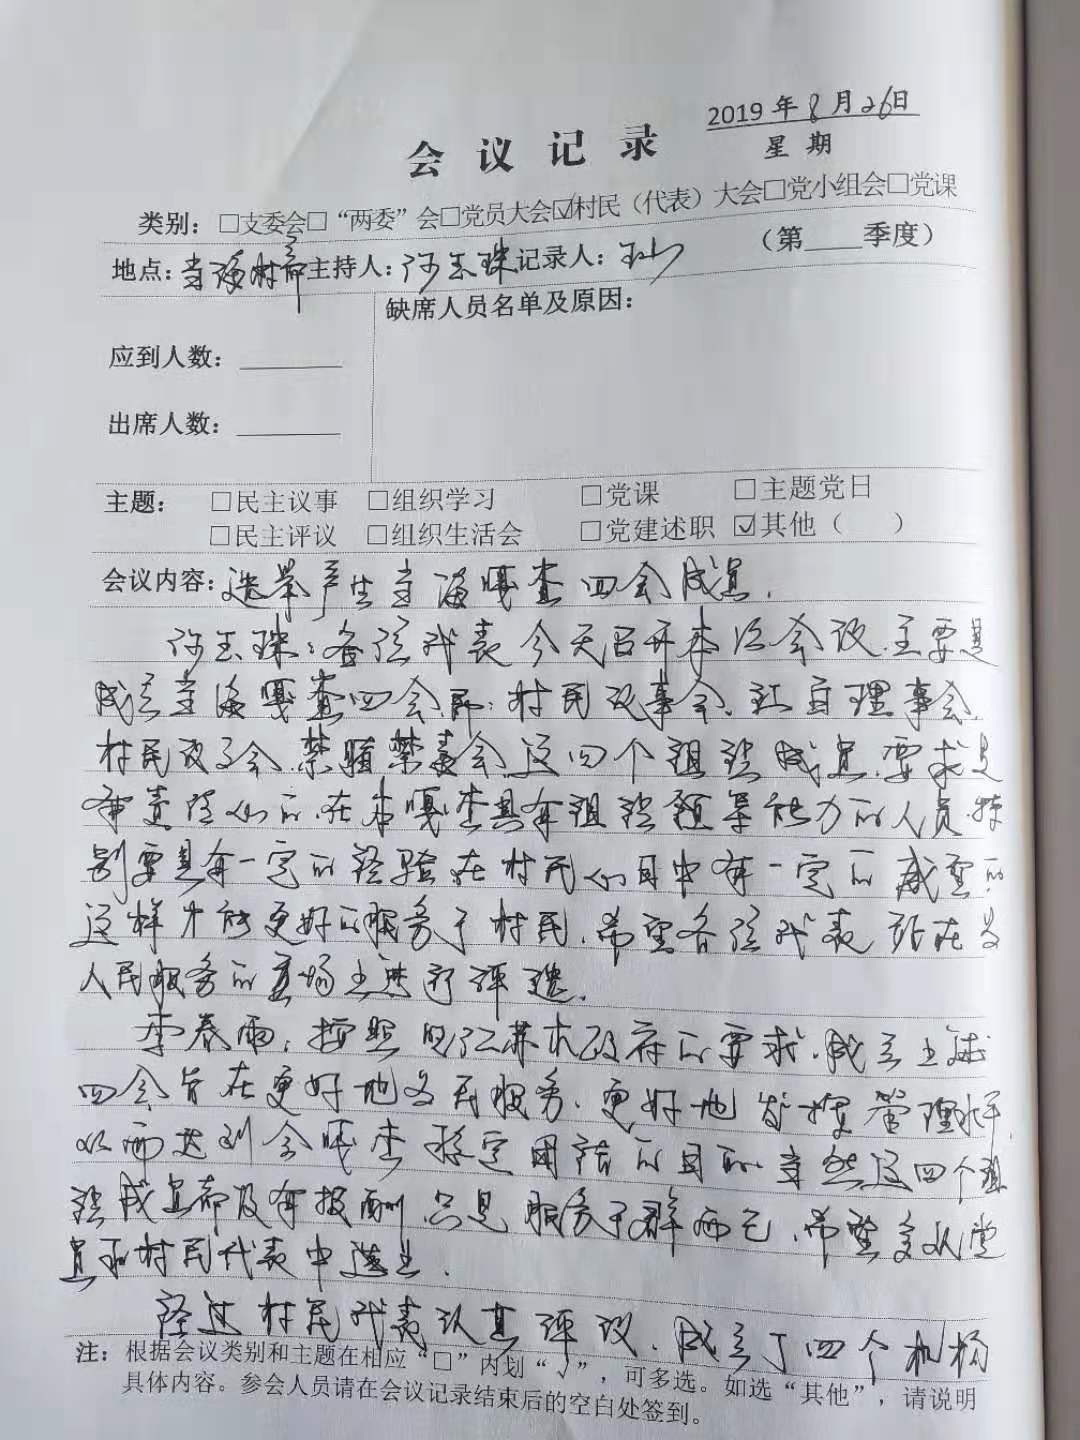 2019年8月26日
会议记录
星期
类别：□支委会□“两委”会□党员大会☑村民（代表）大会□党小组会□党课
（第____季度）
地点：主持人：许玉珠记录人：
缺席人员名单及原因：
应到人数：
出席人数：
主题：□民主议事 □组织学习 □党课 □主题党日
□民主评议 □组织生活会 □党建述职 ☑其他（ ）
会议内容：选举产生海嘎查四会成员.
许玉珠：各位代表今天召开本次会议主要是
成立海嘎查四会，即：村民议事会、红白理事会、
村民议会、禁赌禁毒会，这四个组织成员，要求是
有责任心的，在本嘎查具有组织领导能力的人员，特
别要具有一定的经验，在村民们目中有一定的威望的
这样才能更好的服务于村民，希望各位代表站在为
人民服务的立场上进行评选.
李春雨：按照苏木政府的要求，成立上述
四会旨在更好地为民服务，更好地发挥管理水平，
从而达到全嘎查稳定团结的目的，当然这四个组
织成员都没有报酬只是服务于群而已，希望多从党
员和村民代表中选出.
经过村民代表认真评议，成立了四个机构
注：根据会议类别和主题在相应“□”内划“√”，可多选。如选“其他”，请说明
具体内容。参会人员请在会议记录结束后的空白处签到。